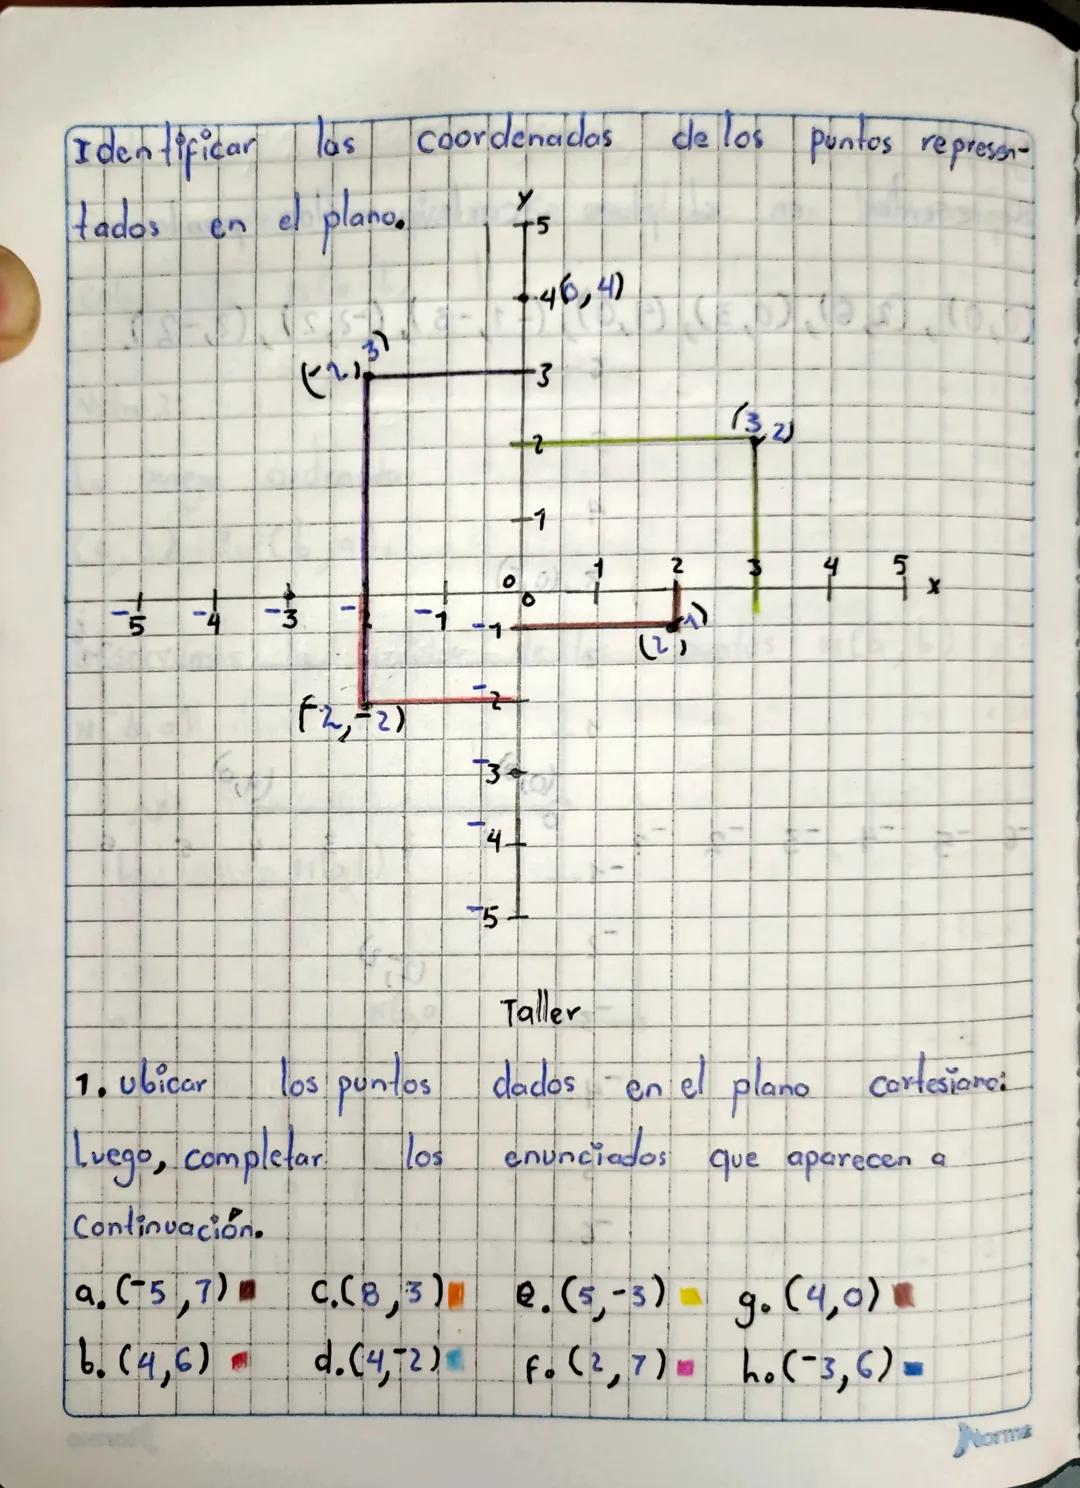 Identificar las coordenadas de los puntos represen-
tados en el plano.
Y
5
4(0,4)
(-2,3)
3
(3,2)
2
1
-5 -4 -3 - -1 0 0 1 2 3 4 5 x
-1
(2,1)
-2
(-2,-2)
-3
-4
-5
Taller
1. Ubicar los puntos dados en el plano cartesiano:
luego, completar los enunciados que aparecen a
continuación.
a. (-5,7) c.(8,3) e.(5,-3) g.(4,0)
b. (4,6) d.(4,-2) f.(2,7) h.(-3,6)
Norma